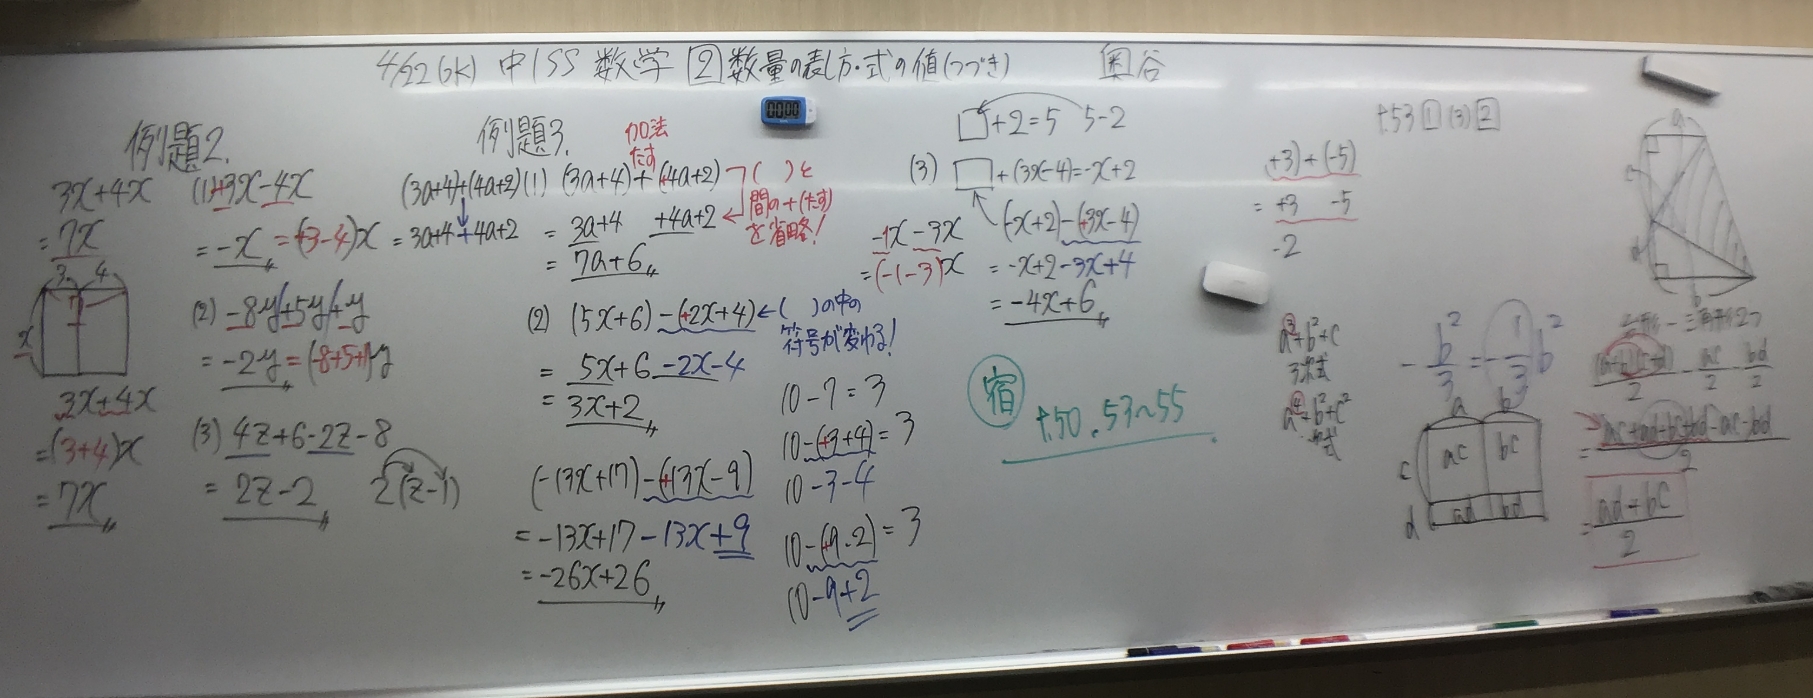 4/22(水) 中1SS 数学 2 数量の表し方・式の値(つづき) 奥谷
例題2.
3x+4x
=7x
3 4
x
3x+4x
=(3+4)x
=7x
(1)+3x-4x
=-x=(+3-4)x
(2) -8y+5y+y
=-2y=(-8+5+1)y
(3) 4z+6-2z-8
=2z-2 2(z-1)
例題3.
加法
たす
(3a+4)+(4a+2)
=3a+4+4a+2
(1) (3a+4)+(+4a+2)
=3a+4 +4a+2
=7a+6
( )と
間の+(たす)
を省略!
(2) (5x+6)-(+2x+4)←( )の中の
符号が変わる!
=5x+6-2x-4
=3x+2
(-13x+17)-(+13x-9)
=-13x+17-13x+9
=-26x+26
10-7=3
10-(+3+4)=3
10-3-4
10-(+9-2)=3
10-9+2
□+2=5 5-2
(3) □+(3x-4)=-x+2
(-x+2)-(+3x-4)
=-x+2-3x+4
=-4x+6
-1x-3x
=(-1-3)x
宿
t50.53~55
t53 1 (3) 2
+3)+(-5)
=+3 -5
-2
a³+b²+c
3次式
a⁴+b²+c²
-b²/3=-1/3b²
a b
c ac bc
d ad bd
a
b
(a+b)(c+d)/2-ac/2-bd/2
=ac+ad+bc+bd-ac-bd/2
=ad+bc/2
0000